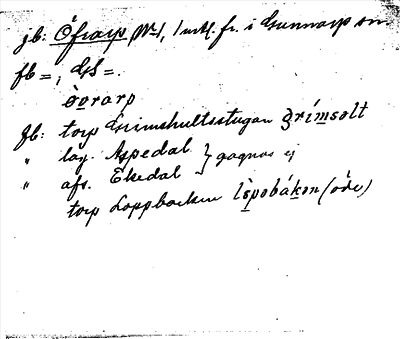 jb: Öfrarp, 1/1 mtl. fr. i Gunnarp sn
fb =, GS =.
òvrarp
jb: torp Grimshultsstugan grímsolt
" läg. Aspedal } gagnas ej
" afs. Ekedal
torp Loppbacken lòpobákon (öde)